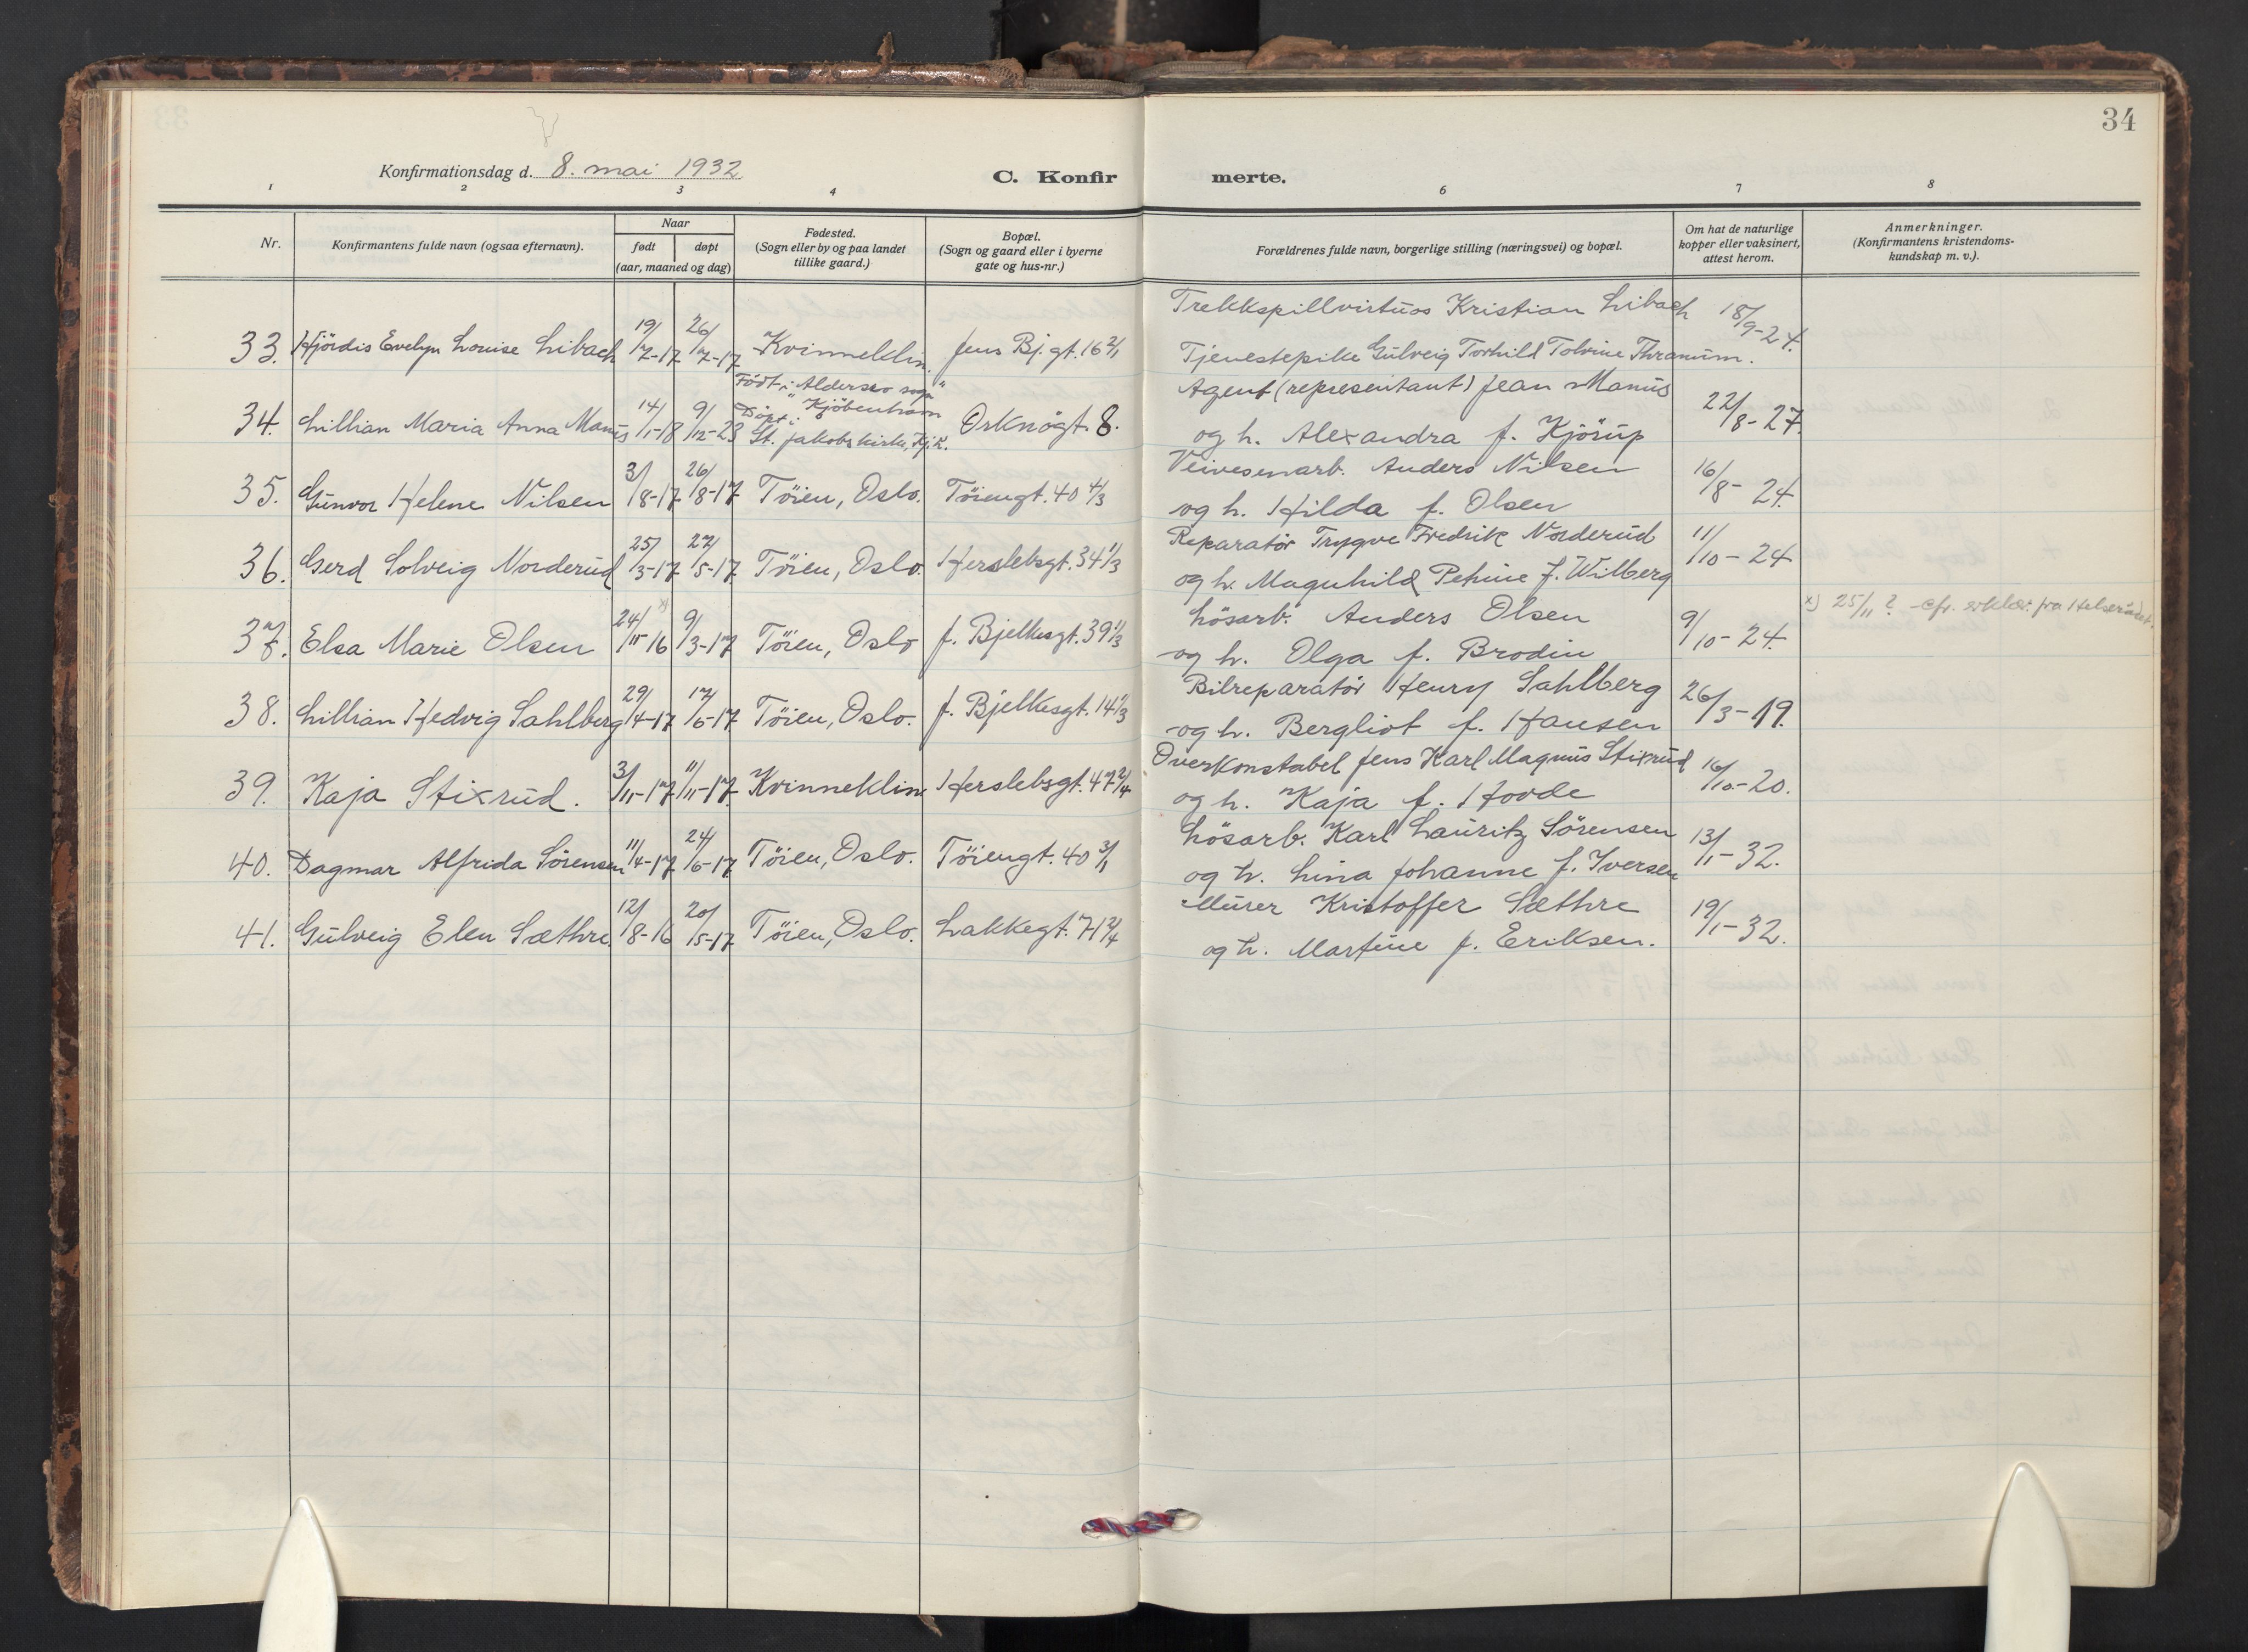 34
Konfirmationsdag d. 8. mai 1932
C. Konfirmerte.
1 2 3 4 6 7 8
Nr.
Konfirmantens fulde navn (ogsaa efternavn).
Naar
født døpt
(aar, maaned og dag)
Fødested.
(Sogn eller by og paa landet
tillike gaard.)
Bopæl.
(Sogn og gaard eller i byerne
gate og hus-nr.)
Forældrenes fulde navn, borgerlige stilling (næringsvei) og bopæl.
Om hat de naturlige
kopper eller vaksinert,
attest herom.
Anmerkninger.
(Konfirmantens kristendoms-
kundskap m. v.).
33. Hjördis Evelyn Louise Libach 19/7-17 26/7-17 Kvinneklin. Jens Bj. gt. 16 2/1
Trekkspillvirtuos Kristian Libach 18/9-24.
Tjenestepike Gülveig Torhild Tolvine Thranüm.
34. Lillian Maria Anna Manüs 14/1-18 9/12-23
Födt i "Aldersro sogn"
Kjöbenhavn
Döpt i
St. Jakobs kirke, Kjk.
Orknögt. 8.
Agent (representant) Jean Manüs 22/8-27.
og h. Alexandra f. Kjörüp
35. Günvor Helene Nilsen 3/8-17 26/8-17 Töien, Oslo. Töiengt. 40 4/3
Veivesenarb. Anders Nilsen 16/8-24.
og h. Hilda f. Olsen
36. Gerd Solveig Norderüd 25/3-17 27/5-17 Töien, Oslo. Herslebsgt. 34 1/3
Reparatör Trygve Fredrik Norderüd 11/10-24
og h. Magnhild Petrine f. Wilberg
37. Elsa Marie Olsen 24/11-16 x) 9/3-17 Töien, Oslo J. Bjelkesgt. 39 1/3
Lösarb. Anders Olsen 9/10-24. x) 25/11 ? - cfr. erklær. fra Helserådet.
og h. Olga f. Brodin
38. Lillian Hedvig Sahlberg 29/4-17 17/6-17 Töien, Oslo. J. Bjelkesgt. 14 1/3
Bilreparatör Henry Sahlberg 26/3-19.
og h. Bergliot f. Hansen
39. Kaja Stixrüd. 3/11-17 11/11-17 Kvinneklin Herslebsgt. 47 2/4
Overkonstabel Jens Karl Magnüs Stixrüd 16/10-20.
og h. Kaja f. Hovde
40. Dagmar Alfrida Sörensen 11/4-17 24/6-17 Töien, Oslo. Töiengt. 40 3/1
Lösarb. Karl Lauritz Sörensen 13/1-32.
og h. Lina Johanne f. Iversen
41. Gülveig Elen Sæthre 12/8-16 20/5-17 Töien, Oslo. Lakkegt. 71 2/4
Mürer Kristoffer Sæthre 19/1-32.
og h. Martine f. Eriksen.